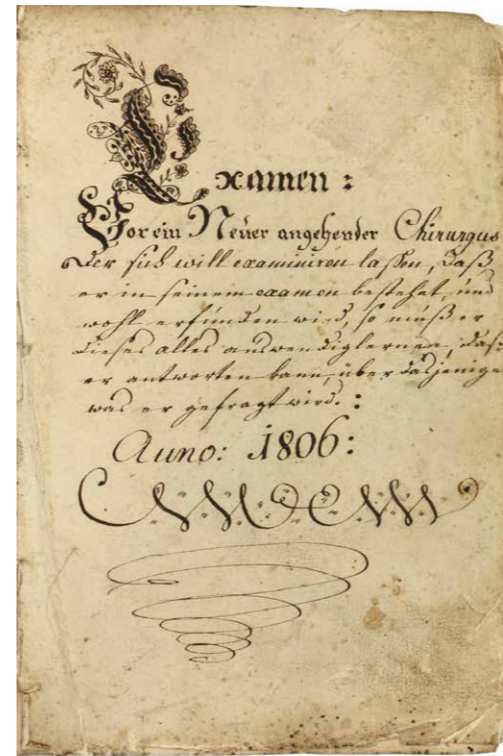 Examen:
Vor ein Neuer angehender Chirurgus
der sich will examiniren laßen, daß
er in seinem examen bestehet, und
wohl erfunden wird, so muß er
dieses alles auswendig lernen, daß
er antworten kann, über dasjenige
was er gefragt wird.:
Anno: 1806: